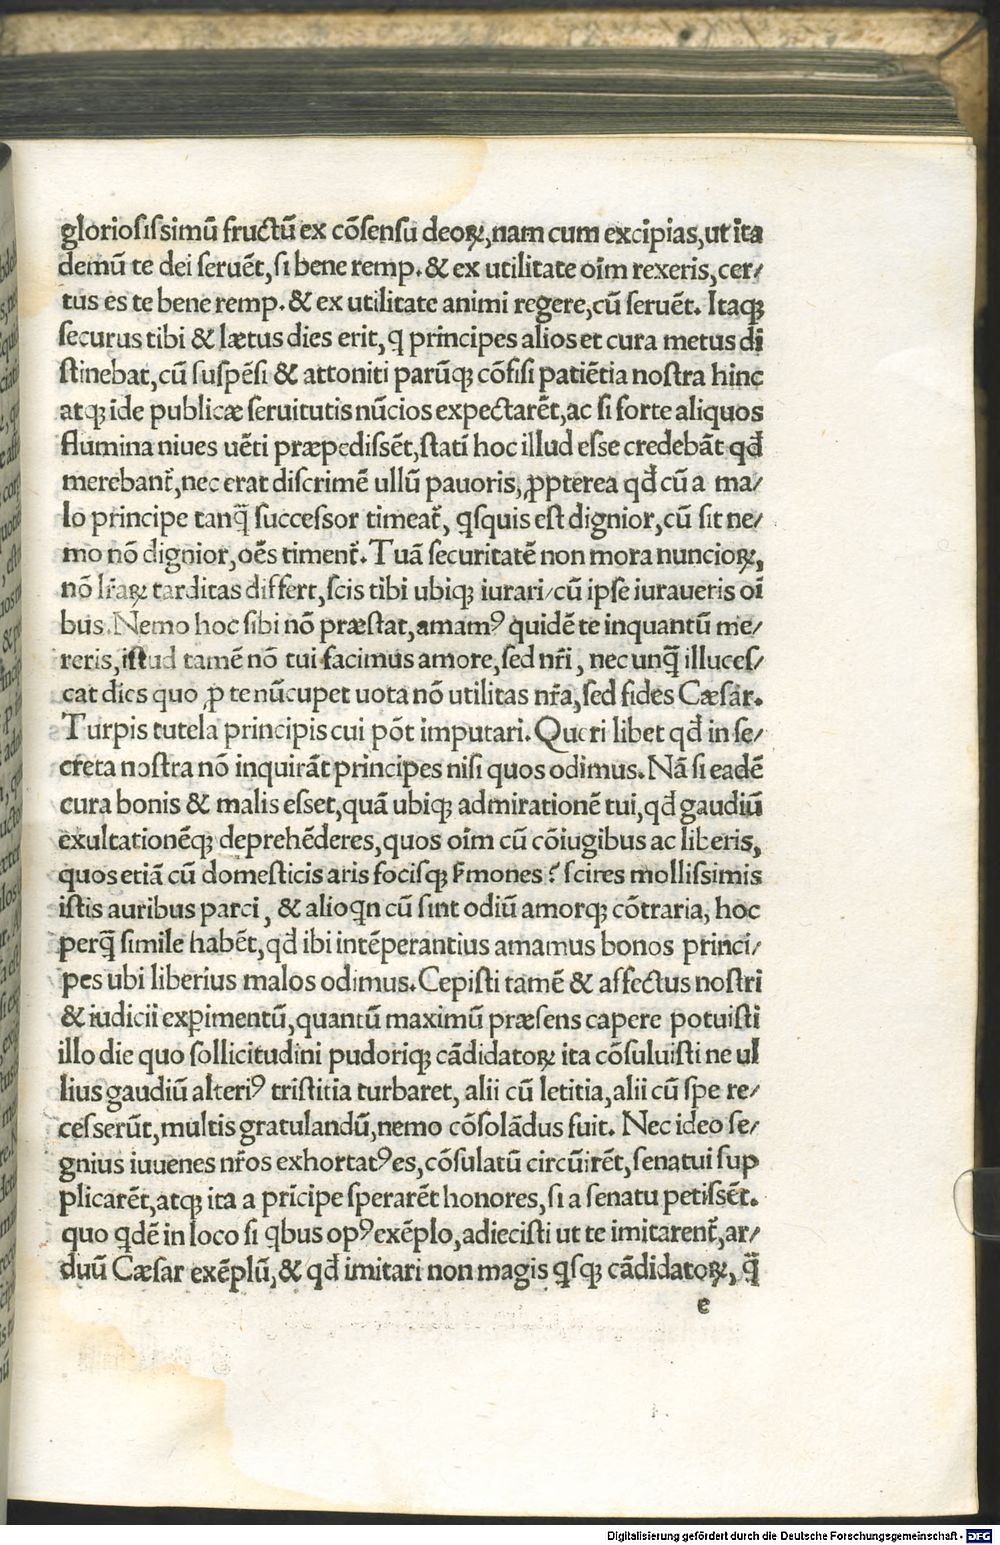 gloriosissimū fructū ex cōsensu deoꝝ, nam cum excipias, ut ita
demū te dei seruēt, si bene remp. & ex utilitate oīm rexeris, cer/
tus es te bene remp. & ex utilitate animi regere, cū seruēt. Itaqꝫ
securus tibi & lætus dies erit, q principes alios et cura metus di
stinebat, cū suspēsi & attoniti parūqꝫ cōfisi patiētia nostra hinc
atqꝫ īde publicæ seruitutis nūcios expectarēt, ac si forte aliquos
flumina niues uēti præpedissēt, statī hoc illud esse credebāt qđ
merebant᷑, nec erat discrimē ullū pauoris, ꝓpterea qđ cū a ma/
lo principe tanq̄ successor timeat᷑, qsquis est dignior, cū sit ne/
mo nō dignior, oēs timent᷑. Tuā securitatē non mora nuncioꝝ,
nō lr̄aꝝ tarditas differt, scis tibi ubiqꝫ iurari/cū ipse iuraueris oī
bus. Nemo hoc sibi nō præstat, amamꝰ quidē te inquantū me/
reris, istud tamē nō tui facimus amore, sed nr̄i, nec unq̄ illuces/
cat dies quo ꝓ te nūcupet uota nō utilitas nr̄a, sed fides Cæsar.
Turpis tutela principis cui pōt imputari. Queri libet qđ in se/
creta nostra nō inquirāt principes nisi quos odimus. Nā si eadē
cura bonis & malis esset, quā ubiqꝫ admirationē tui, qđ gaudiū
exultationēqꝫ deprehēderes, quos oīm cū cōiugibus ac liberis,
quos etiā cū domesticis aris focisqꝫ s̄mones? scires mollissimis
istis auribus parci, & alioqn cū sint odiū amorqꝫ cōtraria, hoc
perq̄ simile habēt, qđ ibi intēperantius amamus bonos princi/
pes ubi liberius malos odimus. Cepisti tamē & affectus nostri
& iudicii exꝑimentū, quantū maximū præsens capere potuisti
illo die quo sollicitudini pudoriqꝫ cādidatoꝝ ita cōsuluisti ne ul
lius gaudiū alteriꝰ tristitia turbaret, alii cū letitia, alii cū spe re/
cesserūt, multis gratulandū, nemo cōsolādus fuit. Nec ideo se/
gnius iuuenes nr̄os exhortatꝰes, cōsulatū circūirēt, senatui sup
plicarēt, atqꝫ ita a prīcipe sperarēt honores, si a senatu petissēt.
quo qdē in loco si qbus opꝰ exēplo, adiecisti ut te imitarent᷑, ar/
duū Cæsar exēplū, & qđ imitari non magis qsqꝫ cādidatoꝝ, q̄
e
Digitalisierung gefördert durch die Deutsche Forschungsgemeinschaft - DFG